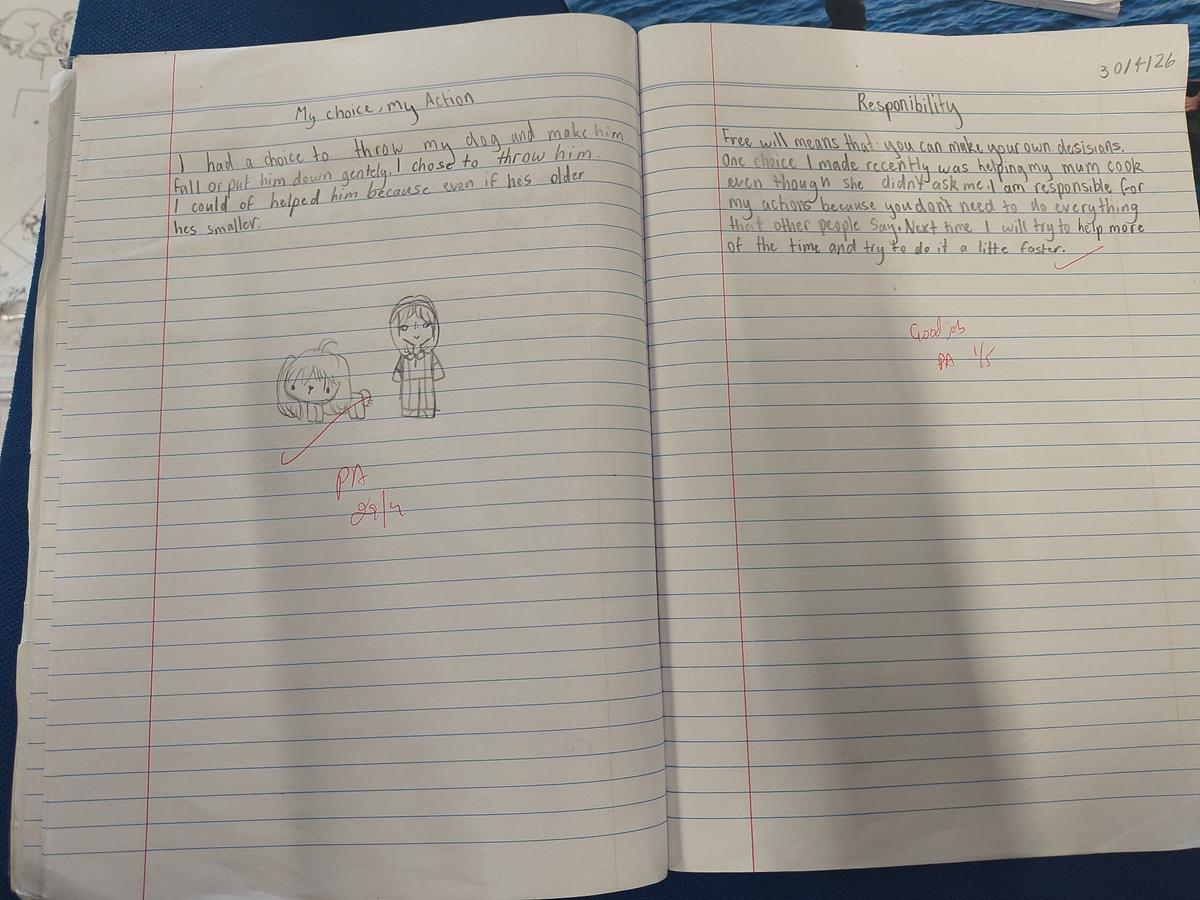 My choice, my Action
I had a choice to throw my dog and make him
fall or put him down gentely. I chose to throw him.
I could of helped him because even if hes older
hes smaller.
PA
29/4
30/4/26
Responibility
Free will means that you can make your own desisions.
One choice I made recently was helping my mum cook
even though she didn't ask me. I am responsible for
my actions because you don't need to do everything
that other people say. Next time I will try to help more
of the time and try to do it a litte faster.
Good job
PA 1/5